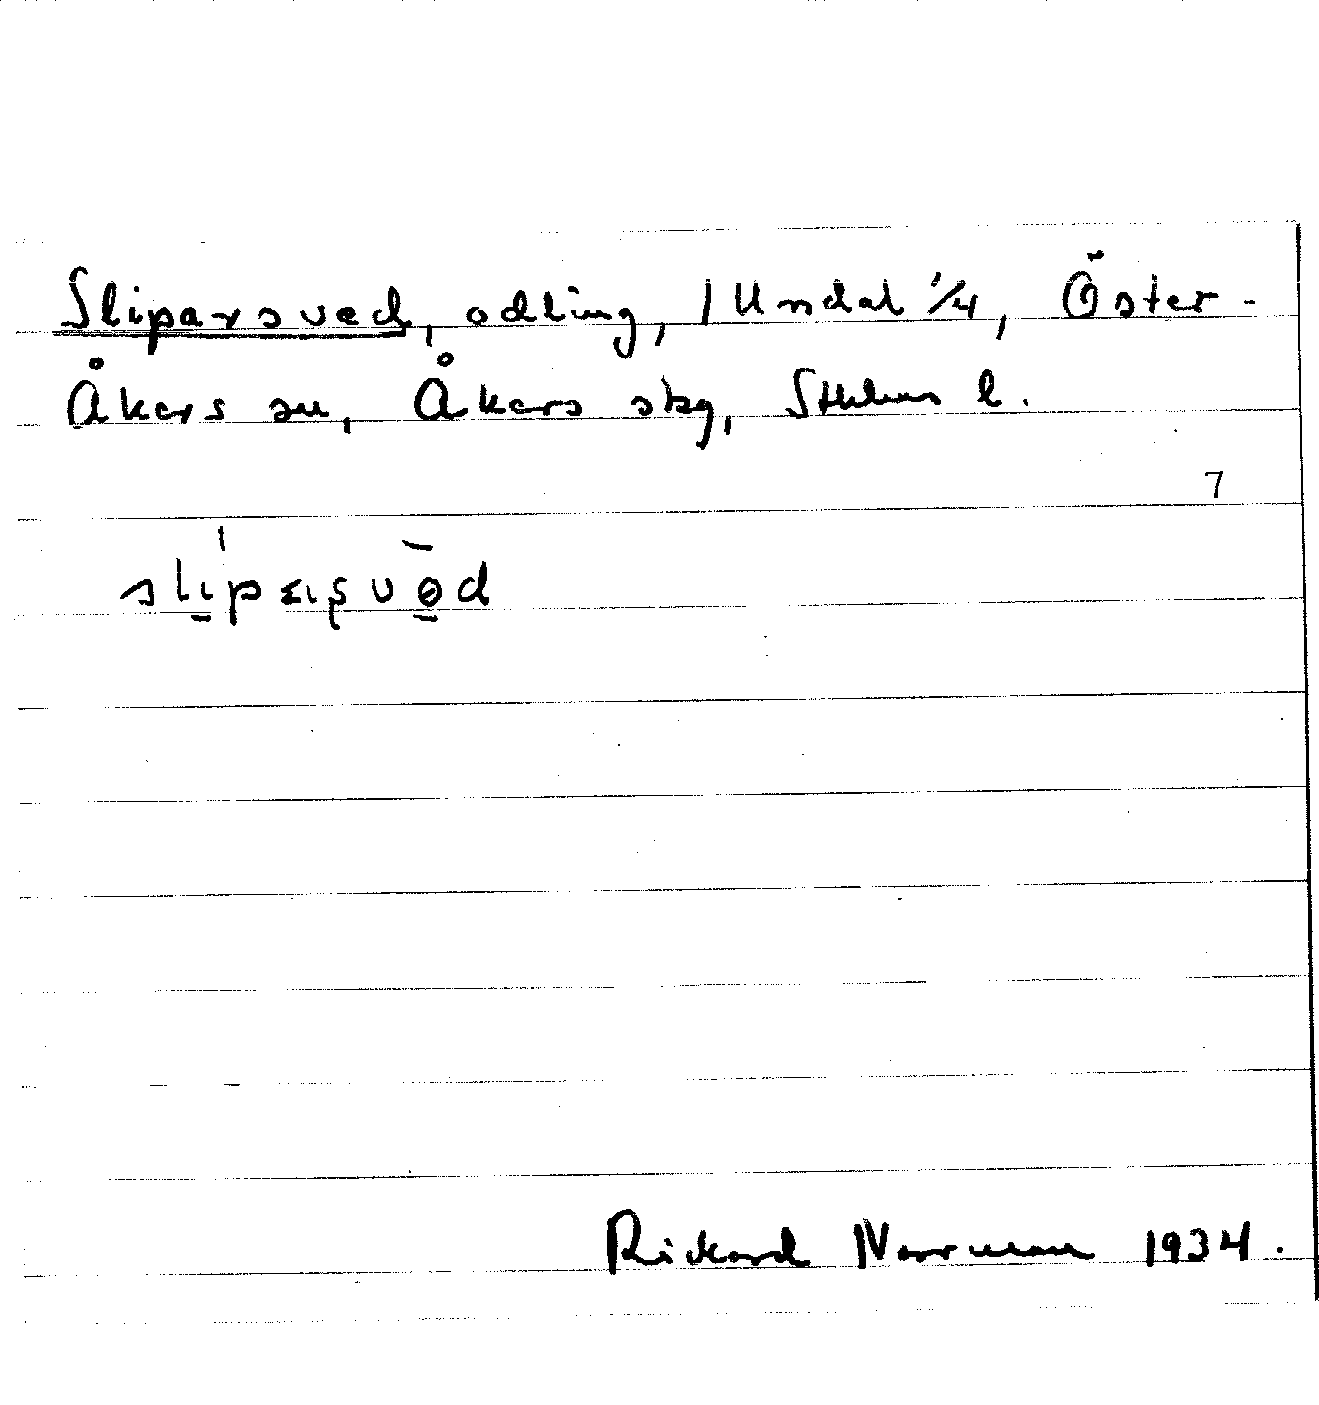 Sliparsved, odling, 1 Undal 1/4, Öster-
Åkers sn, Åkers skg, Sthlms l.
7
Rickard Norrman 1934.